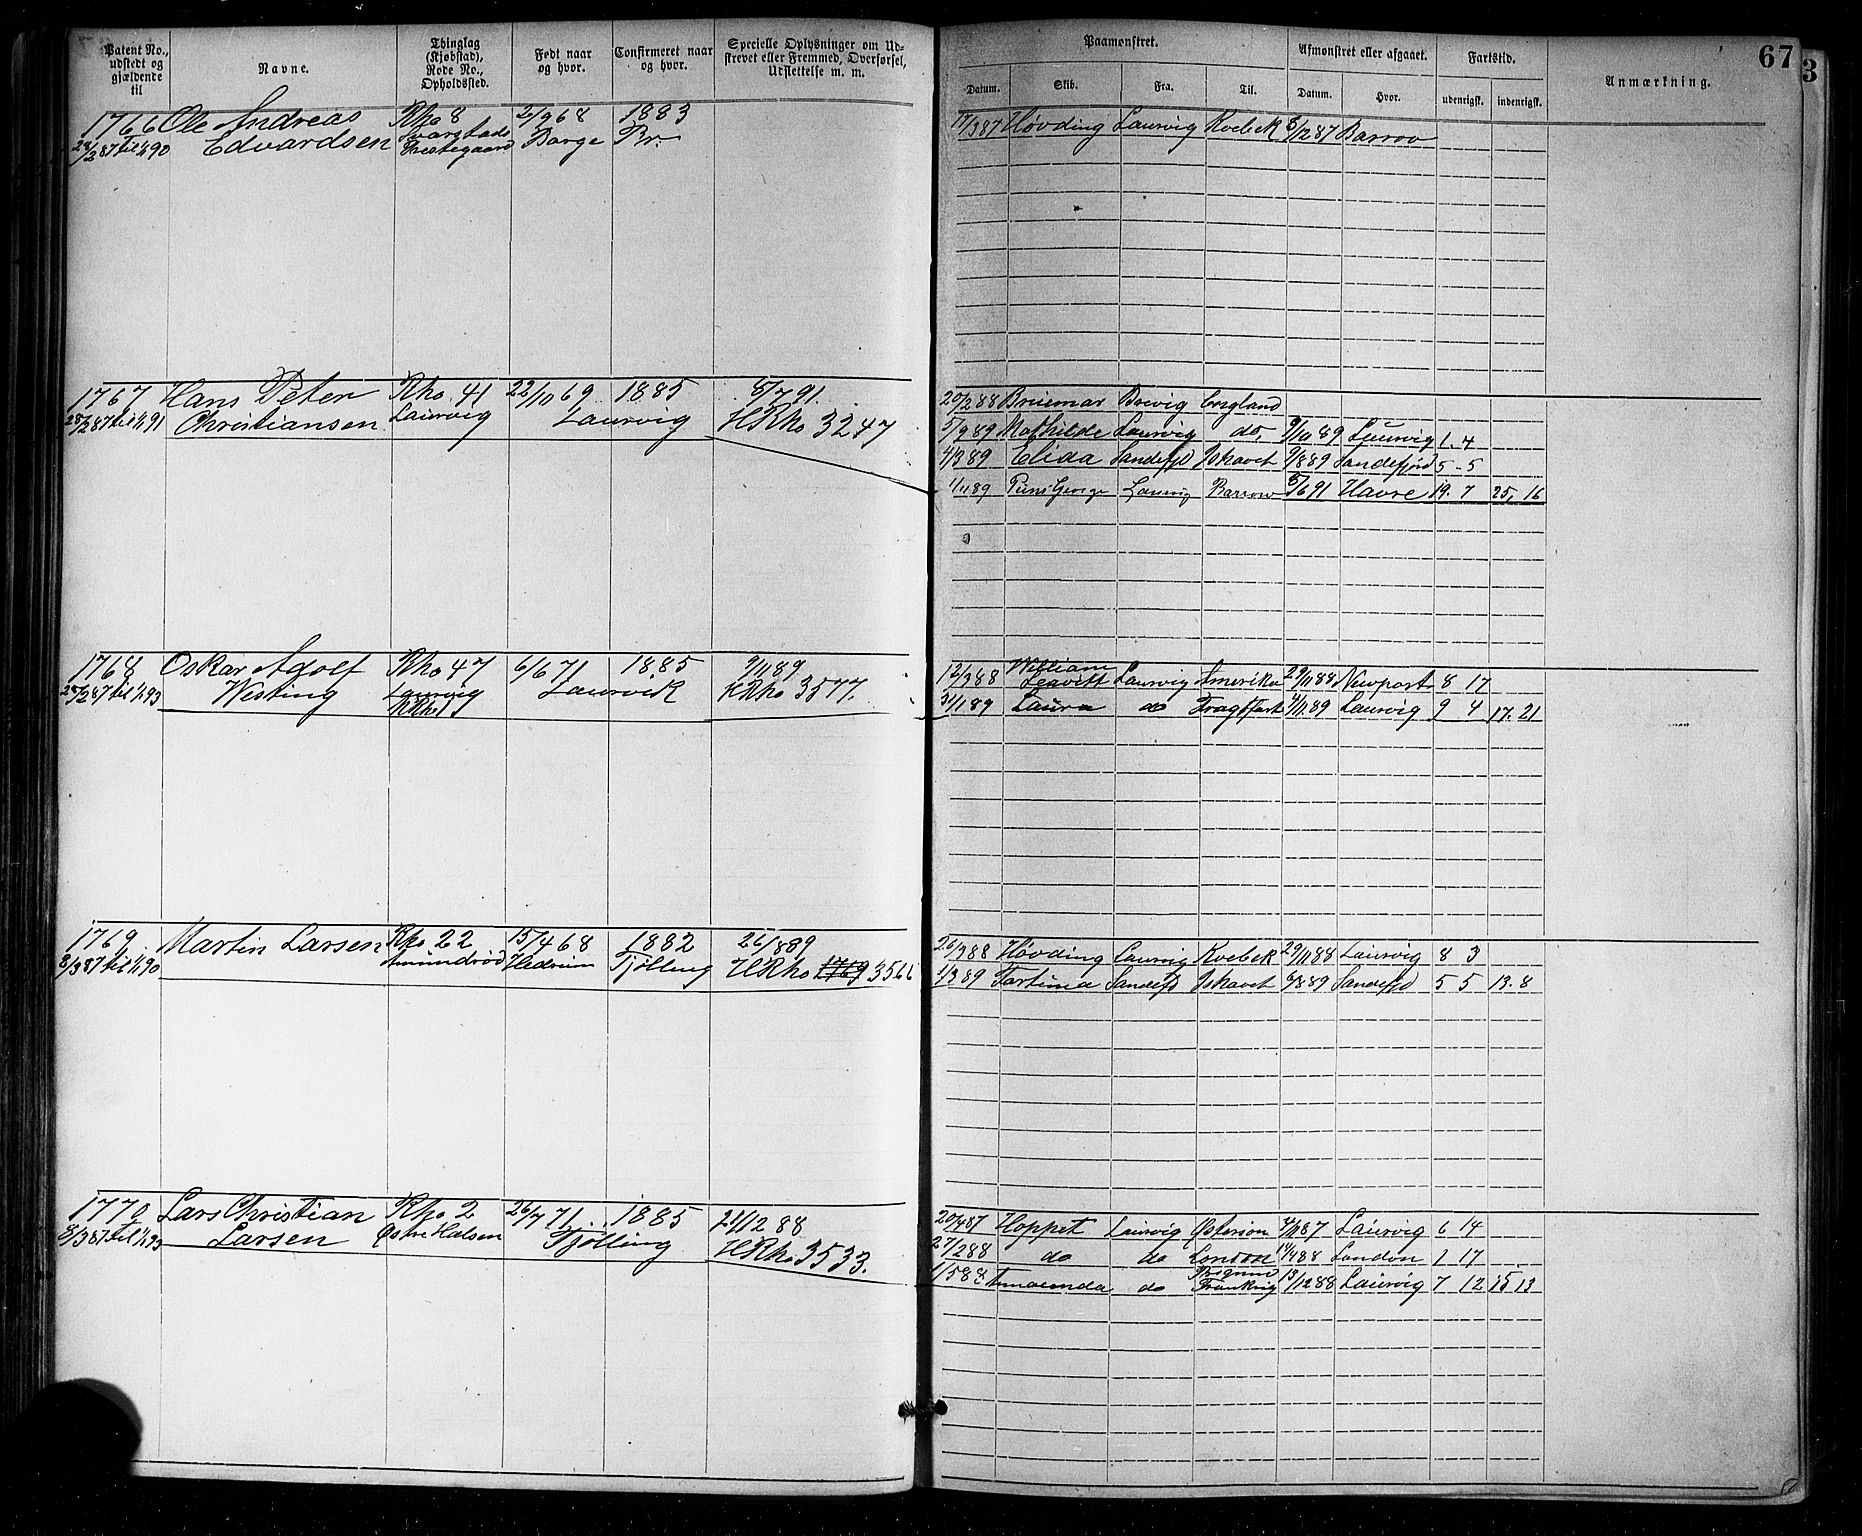 Patent No., udstedt og gjældende til
Navne.
Thinglag (Kjøbstad), Rode No., Opholdssted.
Født naar og hvor.
Confirmeret naar og hvor.
Specielle Oplysninger om Udstrevet eller Fremmed, Overførsel, Udslettelse m. m.
Paamønstret.
Afmønstret eller afgaaet.
Fartstid.
Anmærkning.
67
3
Datum. Skib. Fra. Til. Datum. Hvor. udenrigsk. indenrigsk.
1766 Ole Andreas Rho 8 2/9 68 1883
28/2 87 til 1/1 90 Edvardsen Prestegaard Barge Br.
17/3 87 Høvding Laurvig Kvebek 8/12 87 Barrow
1767 Hans Peter Rho. 41 22/10 69 1885 8/7 91.
28/2 87 til 1/1 91 Christiansen Laurvig Laurvig HRho 3247
20/2 88 Brevig England
5/9 89 Mathilde Laurvig do, 9/10 89 Laurvig 1. 4
4/3 89 Elida Sandefjd Ishavet 9/8 89 Sandefjord 5 - 5
1/11 89 Prins George Laurvig Barrow 8/6 91 Havre 19. 7 25, 16
1768 Oskar Adolf Rho 47 6/6 71 1885 9/11 89
28/2 87 til 1/1 93 Westing Laurvig Laurvik HRho 3577.
12/3 88 William Leavitt Laurvig Amerika 29/11 88 Newport 8 17
31/1 89 Laura do Fragtfart 4/11 89 Laurvig 9 4 17. 21
1769 Martin Larsen Rho 22 15/4 68 1882 26/8 89
8/3 87 til 1/1 90 Amundrød Hedrum Tjølling HRho 1769 3566
26/3 88 Høvding Laurvig Kvebek 29/11 88 Laurvig 8 3
1/3 89 Fortuna Sandefjd Ishavet 6/8 89 Sandefjd 5 5 13. 8
1770 Lars Christian Rho 2 26/7 71. 1885 21/12 88
8/3 87 til 1/1 93 Larsen Østre Halsen Tjølling HRho 3533.
20/4 87 Hoppet Laurvig Østersøen 4/11 87 Laurvig 6 14
27/2 88 do do London 14/4 88 London 1 17
1/5 88 Amoenda do Frankrig 13/12 88 Laurvig 7 12 15 13